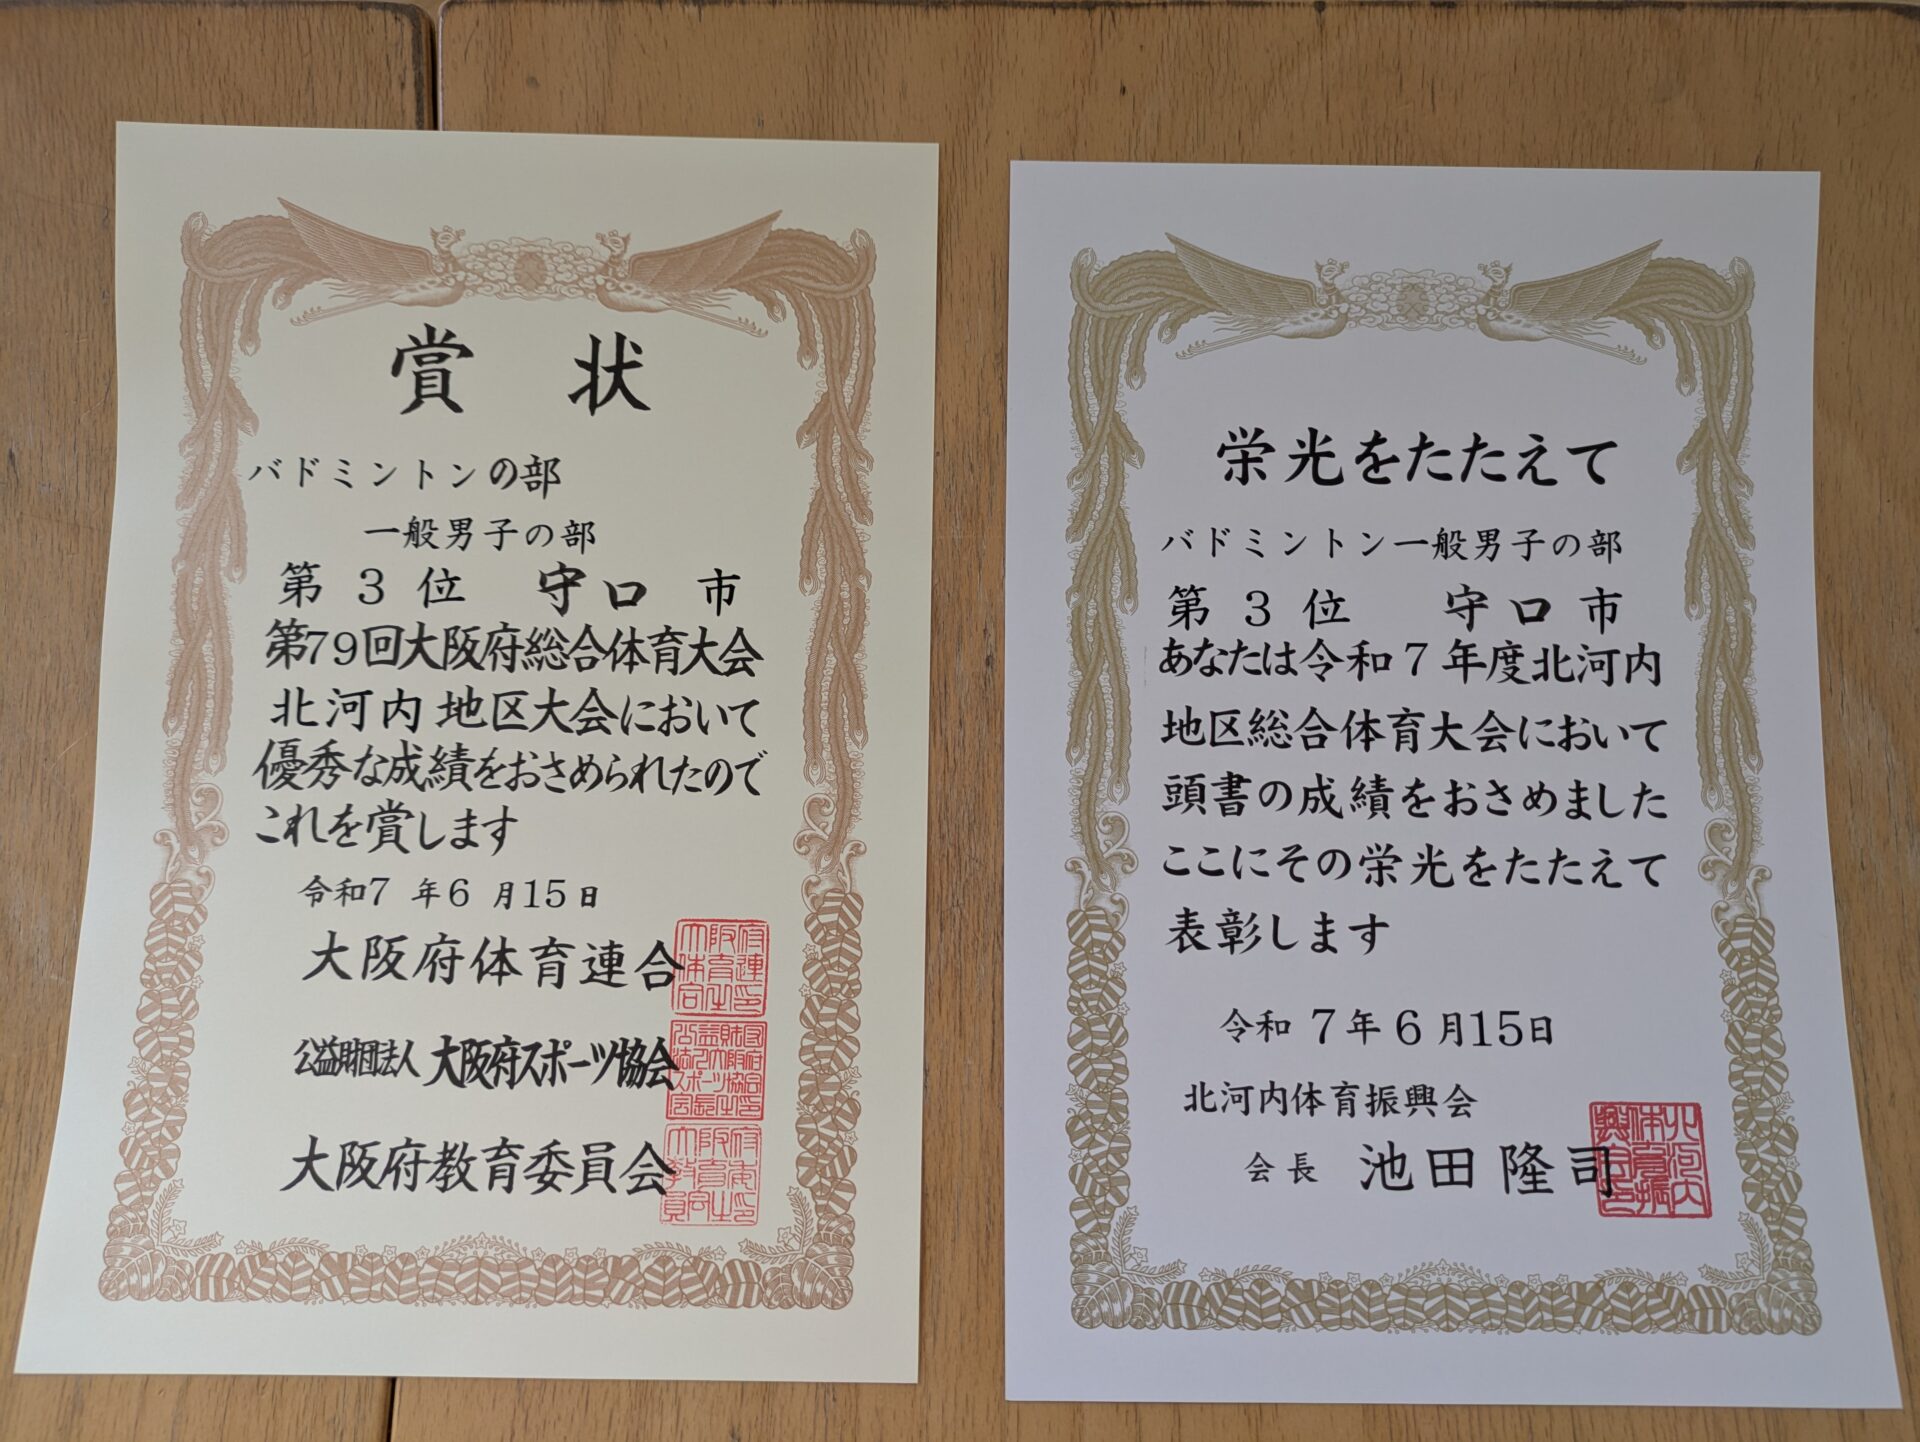 賞状
バドミントンの部
一般男子の部
第3位 守口市
第79回大阪府総合体育大会
北河内地区大会において
優秀な成績をおさめられたので
これを賞します
令和7年6月15日
大阪府体育連合
公益財団法人 大阪府スポーツ協会
大阪府教育委員会
栄光をたたえて
バドミントン一般男子の部
第3位 守口市
あなたは令和7年度北河内
地区総合体育大会において
頭書の成績をおさめました
ここにその栄光をたたえて
表彰します
令和7年6月15日
北河内体育振興会
会長 池田隆司